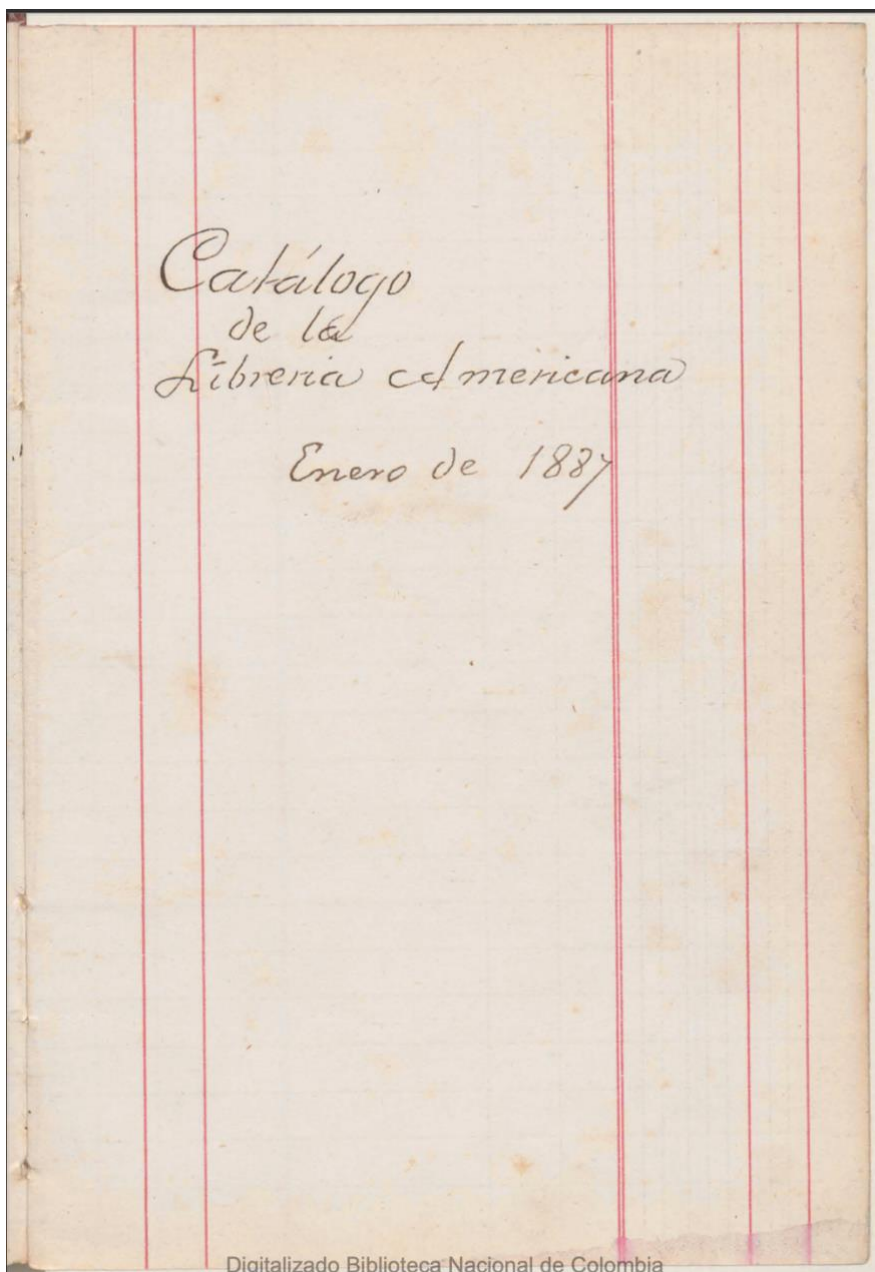 Catálogo
de la
Libreria Americana
Enero de 1887
Digitalizado Biblioteca Nacional de Colombia